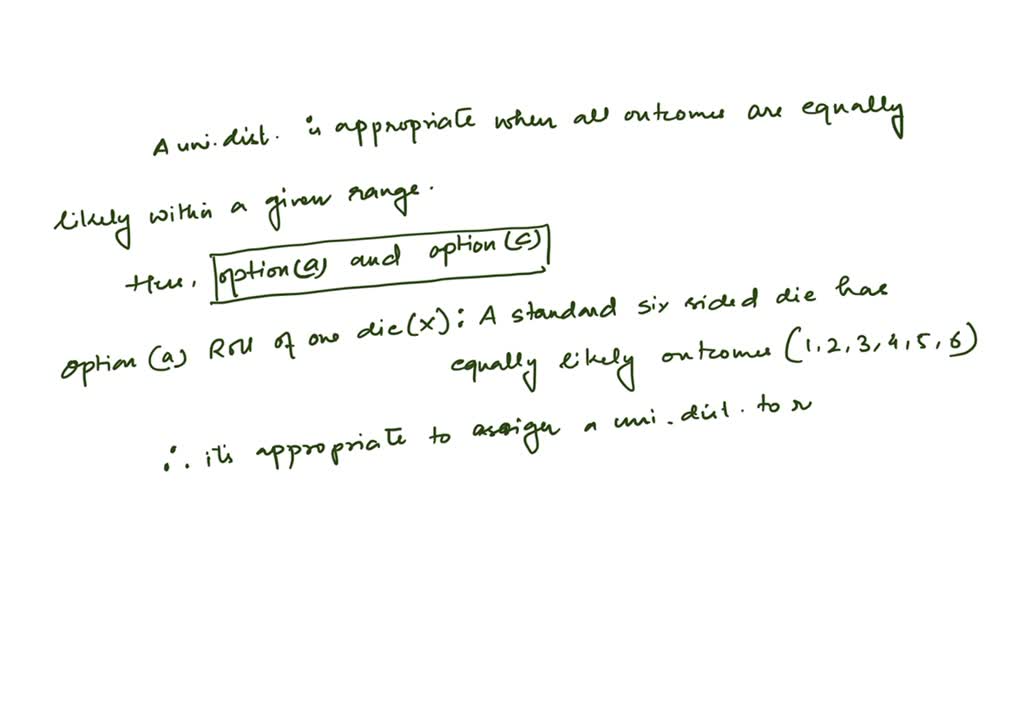 A uni. dist. is appropriate when all outcomes are equally
likely within a given range.
Here, option (a) and option (c)
option (a) Roll of one die (x): A standard six sided die has
equally likely outcomes (1, 2, 3, 4, 5, 6)
∴ it's appropriate to assign a uni. dist. to x